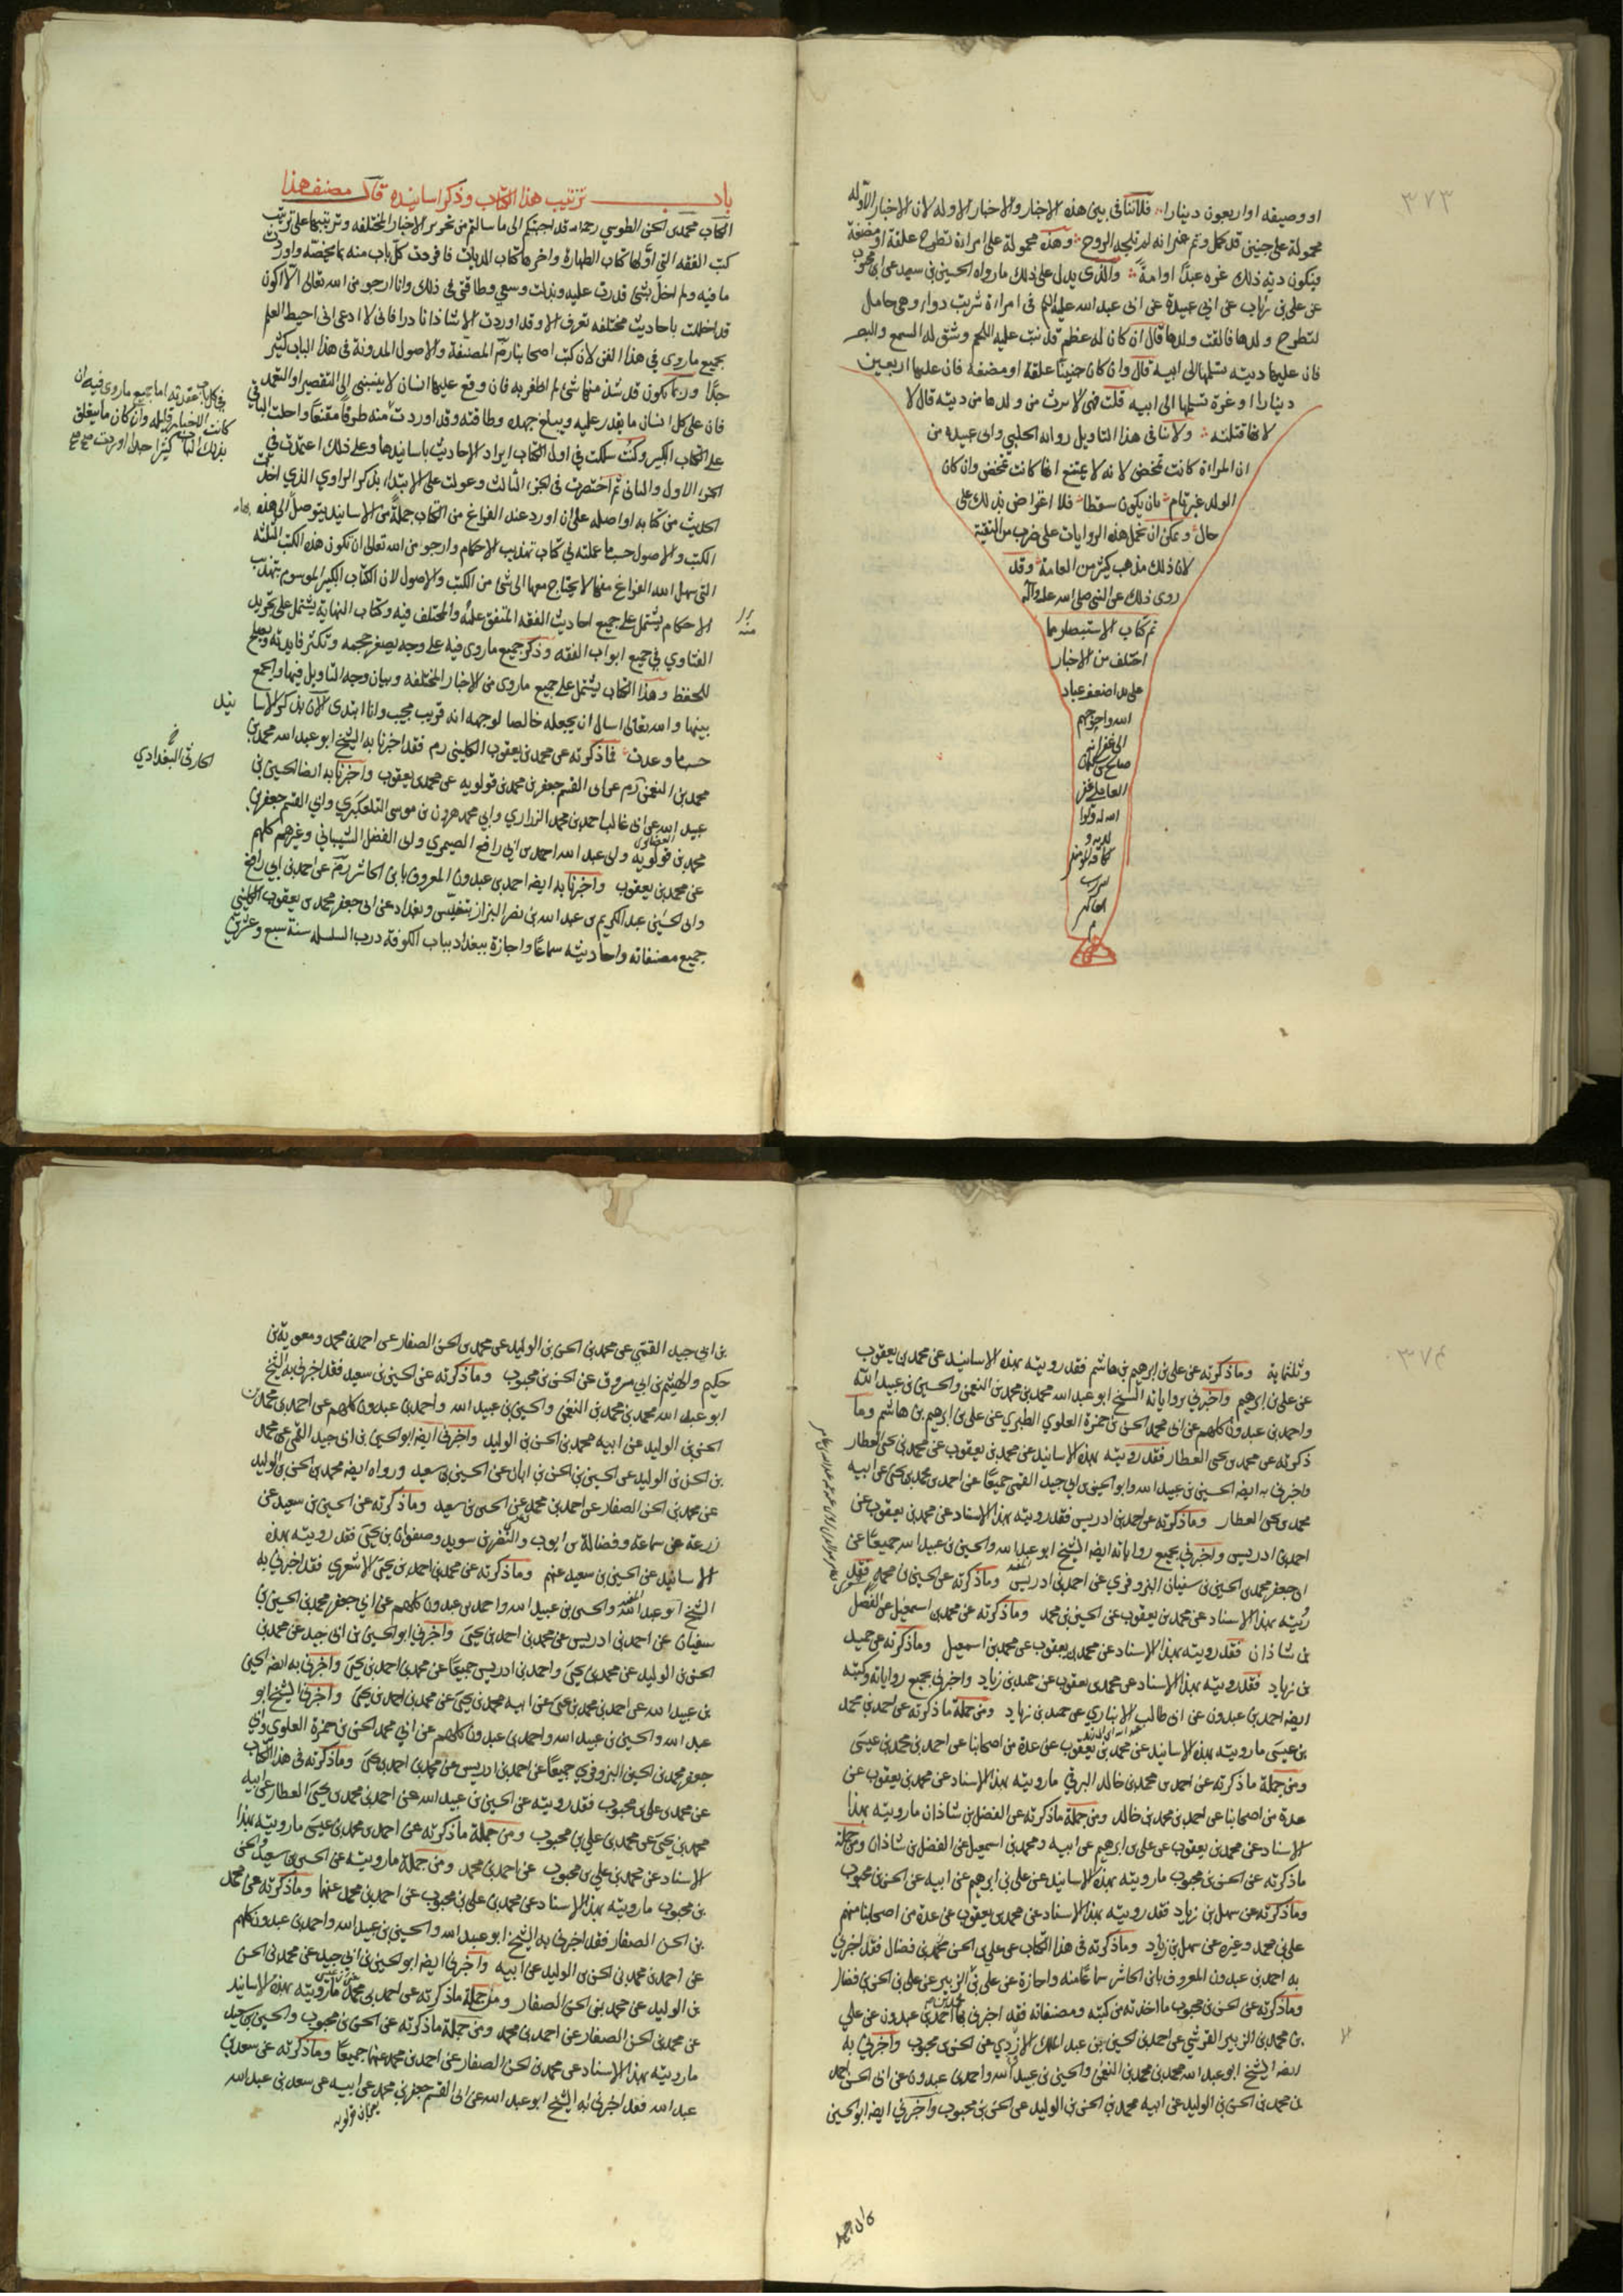 ٣٧٣
او وصيفه او اربعون دينارا فلا تنافى بين هذه الاخبار والاخبار الاوله لان الاخبار الاوله
محمولة على جنين قد كمل وتم غير انه لم تلجه الروح وهذه محمولة على امراة تطرح علقة او مضغة
فيكون ديته ذلك غره عبدًا او امةً والذى يدل على ذلك ما رواه الحسن بن محبوب
عن على بن رئاب عن ابي عبيدة عن ابى عبد الله عليه السلم فى امراة شربت دواء وهى حامل
لتطرح ولدها فالقت ولدها قال ان كان له عظم قد نبت عليه اللحم وشق له السمع والبصر
فان عليها ديته تسلمها الى ابيه قال وان كان جنينًا علقة او مضغة فان عليها اربعين
دينارا او غرة تسلمها الى ابيه قلت فهى لا ترث من ولدها من ديته قال لا
لانها قتلته ولا تنافى هذا التاويل رواية الحلبي وابى عبيده من
ان المراة كانت تمخض لانه لا يمتنع انها كانت تمخض وان كان
الولد غير تام بان يكون سقطا فلا اعتراض بذلك على
حال ويمكن ان نحمل هذه الروايات على ضرب من التقية
لان ذلك مذهب كثير من العامة وقد
روى ذلك عن النبى صلى الله عليه وآله
تم كتاب الاستبصار فيما
اختلف من الاخبار
على يد اضعف عباد
الله واحوجهم
الى غفرانه
العاملي غفر
الله له ولوا
لديه و
باب ترتيب هذا الكتاب وذكر اسانيده قال مصنف هذا
الكتاب محمد بن الحسن الطوسي رحمه الله قد اجبتكم الى ما سالتم من تحرير الاخبار المختلفه وترتيبها على ترتيب
كتب الفقه التي اولها كتاب الطهارة واخرها كتاب الديات فافردت كل باب منه بما يخصه واوردت
ما فيه ولم اخل بشئ قدرت عليه وبذلت وسعي وطاقتى فى ذلك وانا ارجو من الله تعالى الا اكون
قد اخللت باحاديث مختلفه تعرف الا وقد اوردت الا شاذا نادرا فانى لا ادعى انى احيط العلم
بجميع ما روى في هذا الفن لان كتب اصحابنا رم المصنفة والاصول المدونة فى هذا الباب كثير
جدًّا وربما يكون قد شذ منها شئ لم اظفر به فان وقع عليها انسان لا ينسبنى الى التقصير او التعمد
فان على كل انسان ما يقدر عليه ويبلغ جهده وطاقته وقد اوردت منه طرفًا مقنعًا واحلت الباقي
على الكتاب الكبير وكنت سلكت في اول الكتاب ايراد الاحاديث باسانيدها وعلى ذلك اعتمدت في
الجزء الاول والثانى ثم اختصرت فى الجزء الثالث وعولت على الابتداء بذكر الراوي الذي اخذت
الحديث من كتابه او اصله على ان اورد عند الفراغ من الكتاب جملةً من الاسانيد يتوصل الى هذه
الكتب والاصول حسب ما عملته في كتاب تهذيب الاحكام وارجو من الله تعالى ان تكون هذه الكتب الثلثة
التى سهل الله الفراغ منها لا يحتاج معها الى شئ من الكتب والاصول لان الكتاب الكبير الموسوم بتهذيب
الاحكام يشتمل على جميع احاديث الفقه المتفق عليه والمختلف فيه وكتاب النهاية يشتمل على تجريد
الفتاوي في جميع ابواب الفقه وذكر جميع ما روى فيه على وجه يصغر حجمه وتكثر فايدته ويصلح
للحفظ وهذا الكتاب يشتمل على جميع ما روى من الاخبار المختلفه وبيان وجه التاويل فيها والجمع
بينها والله تعالى اسال ان يجعله خالصا لوجهه انه قريب مجيب وانا ابتدى الآن بذكر الاسا نيد
حسب ما وعدت فما ذكرته عن محمد بن يعقوب الكلينى رم فقد اخبرنا به الشيخ ابو عبد الله محمد بن
محمد بن النعمن رم عن ابى القسم جعفر بن محمد بن قولويه عن محمد بن يعقوب واخبرنا به ايضا الحسين بن
عبيد الله عن ابى غالب احمد بن محمد الزراري وابي محمد هرون بن موسى التلعكبري وابي القسم جعفر بن
محمد بن قولويه وابى عبد الله احمد بن ابى رافع الصيمري وابى الفضل الشيبانى وغيرهم كلهم
عن محمد بن يعقوب واخبرنا به ايضا احمد بن عبدون المعروف بابن الحاشر رم عن احمد بن ابى رافع
وابى الحسين عبد الكريم بن عبد الله بن نصر البزاز بتفليس وبغداد عن ابى جعفر محمد بن يعقوب الكلينى
جميع مصنفاته واحاديثه سماعًا واجازة ببغداد بباب الكوفة درب السلسلة سنة سبع وعشرين
الحارثي البغدادي
وثلثماية وما ذكرته عن على بن ابرهيم بن هاشم فقد رويته بهذه الاسانيد عن محمد بن يعقوب
عن على بن ابرهيم واخبرنى برواياته الشيخ ابو عبد الله محمد بن محمد بن النعمن والحسين بن عبيد الله
واحمد بن عبدون كلهم عن ابى محمد الحسن بن حمزة العلوي الطبري عن على بن ابرهيم بن هاشم وما
ذكرته عن محمد بن يحيى العطار فقد رويته بهذه الاسانيد عن محمد بن يعقوب عن محمد بن يحيى العطار
واخبرنى به ايضا الحسين بن عبيد الله وابو الحسين بن ابي جيد القمى جميعًا عن احمد بن محمد بن يحيى عن ابيه
محمد بن يحيى العطار وما ذكرته عن احمد بن ادريس فقد رويته بهذا الاسناد عن محمد بن يعقوب عن
احمد بن ادريس واخبرنى بجميع رواياته ايضا الشيخ ابو عبد الله والحسين بن عبيد الله جميعًا عن
ابى جعفر محمد بن الحسين بن سفيان البزوفري عن احمد بن ادريس وما ذكرته عن الحسين بن محمد فقد
رويته بهذا الاسناد عن محمد بن يعقوب عن الحسين بن محمد وما ذكرته عن محمد بن اسمعيل عن الفضل
بن شاذان فقد رويته بهذا الاسناد عن محمد بن يعقوب عن محمد بن اسمعيل وما ذكرته عن حميد
بن زياد فقد رويته بهذا الاسناد عن محمد بن يعقوب عن حميد بن زياد واخبرنى بجميع رواياته وكتبه
ايضا احمد بن عبدون عن ابى طالب الانباري عن حميد بن زياد ومن جملة ما ذكرته عن احمد بن محمد
بن عيسى ما رويته بهذه الاسانيد عن محمد بن يعقوب عن عدة من اصحابنا عن احمد بن محمد بن عيسى
ومن جملة ما ذكرته عن احمد بن محمد بن خالد البرقي ما رويته بهذا الاسناد عن محمد بن يعقوب عن
عدة من اصحابنا عن احمد بن محمد بن خالد ومن جملة ما ذكرته عن الفضل بن شاذان ما رويته بهذا
الاسناد عن محمد بن يعقوب عن على بن ابرهيم عن ابيه ومحمد بن اسمعيل عن الفضل بن شاذان ومن جملة
ما ذكرته عن الحسن بن محبوب ما رويته بهذه الاسانيد عن على بن ابرهيم عن ابيه عن الحسن بن محبوب
وما ذكرته عن سهل بن زياد فقد رويته بهذا الاسناد عن محمد بن يعقوب عن عدة من اصحابنا منهم
على بن محمد وغيره عن سهل بن زياد وما ذكرته فى هذا الكتاب عن على بن الحسن بن فضال فقد اخبرنى
به احمد بن عبدون المعروف بابن الحاشر سماعًا منه واجازة عن على بن الزبير عن على بن الحسن بن فضال
وما ذكرته عن الحسن بن محبوب ما اخذته من كتبه ومصنفاته فقد اخبرنى بها احمد بن عبدون عن على
بن محمد بن الزبير القرشي عن احمد بن الحسين بن عبد الملك الازدي عن الحسن بن محبوب واخبرني به
ايضا الشيخ ابو عبد الله محمد بن محمد بن النعمن والحسين بن عبيد الله واحمد بن عبدون عن ابى الحسن احمد
بن محمد بن الحسن بن الوليد عن ابيه محمد بن الحسن بن الوليد عن الحسن بن محبوب واخبرني ايضا ابو الحسين
بن ابي جيد القمي عن محمد بن الحسن بن الوليد عن محمد بن الحسن الصفار عن احمد بن محمد ومعوية بن
حكيم والهيثم بن ابي مسروق عن الحسن بن محبوب وما ذكرته عن الحسين بن سعيد فقد اخبرنى به الشيخ
ابو عبد الله محمد بن محمد بن النعمن والحسين بن عبيد الله واحمد بن عبدون كلهم عن احمد بن محمد بن
الحسن بن الوليد عن ابيه محمد بن الحسن بن الوليد واخبرنى ايضا ابو الحسين بن ابى جيد القمى عن محمد
بن الحسن بن الوليد عن الحسين بن الحسن بن ابان عن الحسين بن سعيد ورواه ايضا محمد بن الحسن بن الوليد
عن محمد بن الحسن الصفار عن احمد بن محمد عن الحسين بن سعيد وما ذكرته عن الحسين بن سعيد عن
زرعة عن سماعة وفضالة بن ايوب والنضر بن سويد وصفوان بن يحيى فقد رويته بهذه
الاسانيد عن الحسين بن سعيد عنهم وما ذكرته عن محمد بن احمد بن يحيى الاشعري فقد اخبرنى به
الشيخ ابو عبد الله والحسين بن عبيد الله واحمد بن عبدون كلهم عن ابي جعفر محمد بن الحسين بن
سفيان عن احمد بن ادريس عن محمد بن احمد بن يحيى واخبرنى ابو الحسين بن ابى جيد عن محمد بن
الحسن بن الوليد عن محمد بن يحيى واحمد بن ادريس جميعًا عن محمد بن احمد بن يحيى واخبرنى به ايضا الحسين
بن عبيد الله عن احمد بن محمد بن يحيى عن ابيه محمد بن يحيى عن محمد بن احمد بن يحيى واخبرنى الشيخ ابو
عبد الله والحسين بن عبيد الله واحمد بن عبدون كلهم عن ابي محمد الحسن بن حمزة العلوي وابي
جعفر محمد بن الحسين البزوفري جميعًا عن احمد بن ادريس عن محمد بن احمد بن يحيى وما ذكرته فى هذا الكتاب
عن محمد بن على بن محبوب فقد رويته عن الحسين بن عبيد الله عن احمد بن محمد بن يحيى العطار عن ابيه
محمد بن يحيى عن محمد بن على بن محبوب ومن جملة ما ذكرته عن احمد بن محمد بن عيسى ما رويته بهذا
الاسناد عن محمد بن على بن محبوب عن احمد بن محمد ومن جملة ما رويته عن الحسين بن سعيد والحسن
بن محبوب ما رويته بهذا الاسناد عن محمد بن على بن محبوب عن احمد بن محمد عنهما وما ذكرته عن محمد
بن الحسن الصفار فقد اخبرنى به الشيخ ابو عبد الله والحسين بن عبيد الله واحمد بن عبدون كلهم
عن احمد بن محمد بن الحسن بن الوليد عن ابيه واخبرنى ايضا ابو الحسين بن ابي جيد عن محمد بن الحسن
بن الوليد عن محمد بن الحسن الصفار ومن جملة ما ذكرته عن احمد بن محمد ما رويته بهذه الاسانيد
عن محمد بن الحسن الصفار عن احمد بن محمد ومن جملة ما ذكرته عن الحسن بن محبوب والحسين بن سعيد
ما رويته بهذا الاسناد عن محمد بن الحسن الصفار عن احمد بن محمد عنهما جميعًا وما ذكرته عن سعد بن
عبد الله فقد اخبرنى به الشيخ ابو عبد الله عن ابى القسم جعفر بن محمد عن ابيه عن سعد بن عبد الله